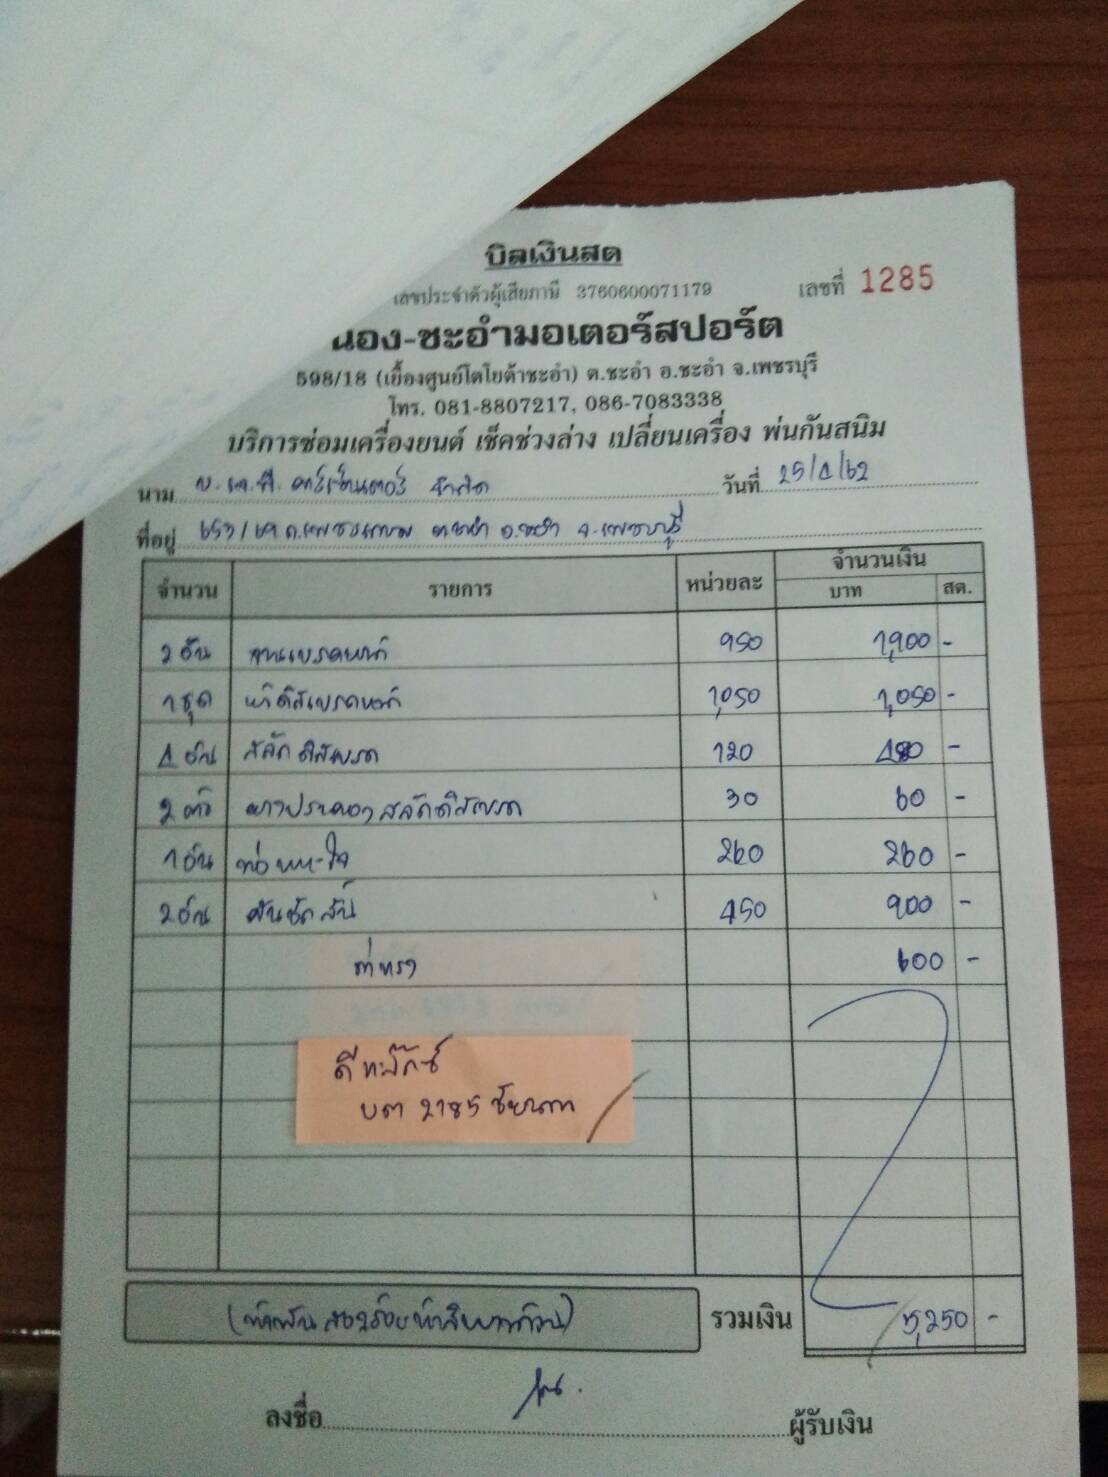 บิลเงินสด
เลขประจำตัวผู้เสียภาษี 3760600071179 เลขที่ 1285
นอง-ชะอำมอเตอร์สปอร์ต
598/18 (เยื้องศูนย์โตโยต้าชะอำ) ต.ชะอำ อ.ชะอำ จ.เพชรบุรี
โทร. 081-8807217, 086-7083338
บริการซ่อมเครื่องยนต์ เช็คช่วงล่าง เปลี่ยนเครื่อง พ่นกันสนิม
นาม บ. เค.พี. คาร์เซ็นเตอร์ จำกัด วันที่ 25/4/62
ที่อยู่ ถ.เพชรเกษม ต.ชะอำ อ.ชะอำ จ.เพชรบุรี
จำนวน รายการ หน่วยละ จำนวนเงิน
บาท สต.
2 อัน จานเบรคหน้า 950 1,900 -
1 ชุด ผ้าดิสเบรคหน้า 1,050 1,050 -
4 อัน สลักดิสเบรค 120 480 -
2 ตัว ยางประคองสลักดิสเบรค 30 60 -
1 อัน ท่อหายใจ 260 260 -
2 อัน คันชักสั้น 450 900 -
ค่าแรง 600 -
ดีแม็กซ์
บต 2185 ชัยนาท
(ห้าพันสองร้อยห้าสิบบาทถ้วน) รวมเงิน 5,250 -
ลงชื่อ ผู้รับเงิน